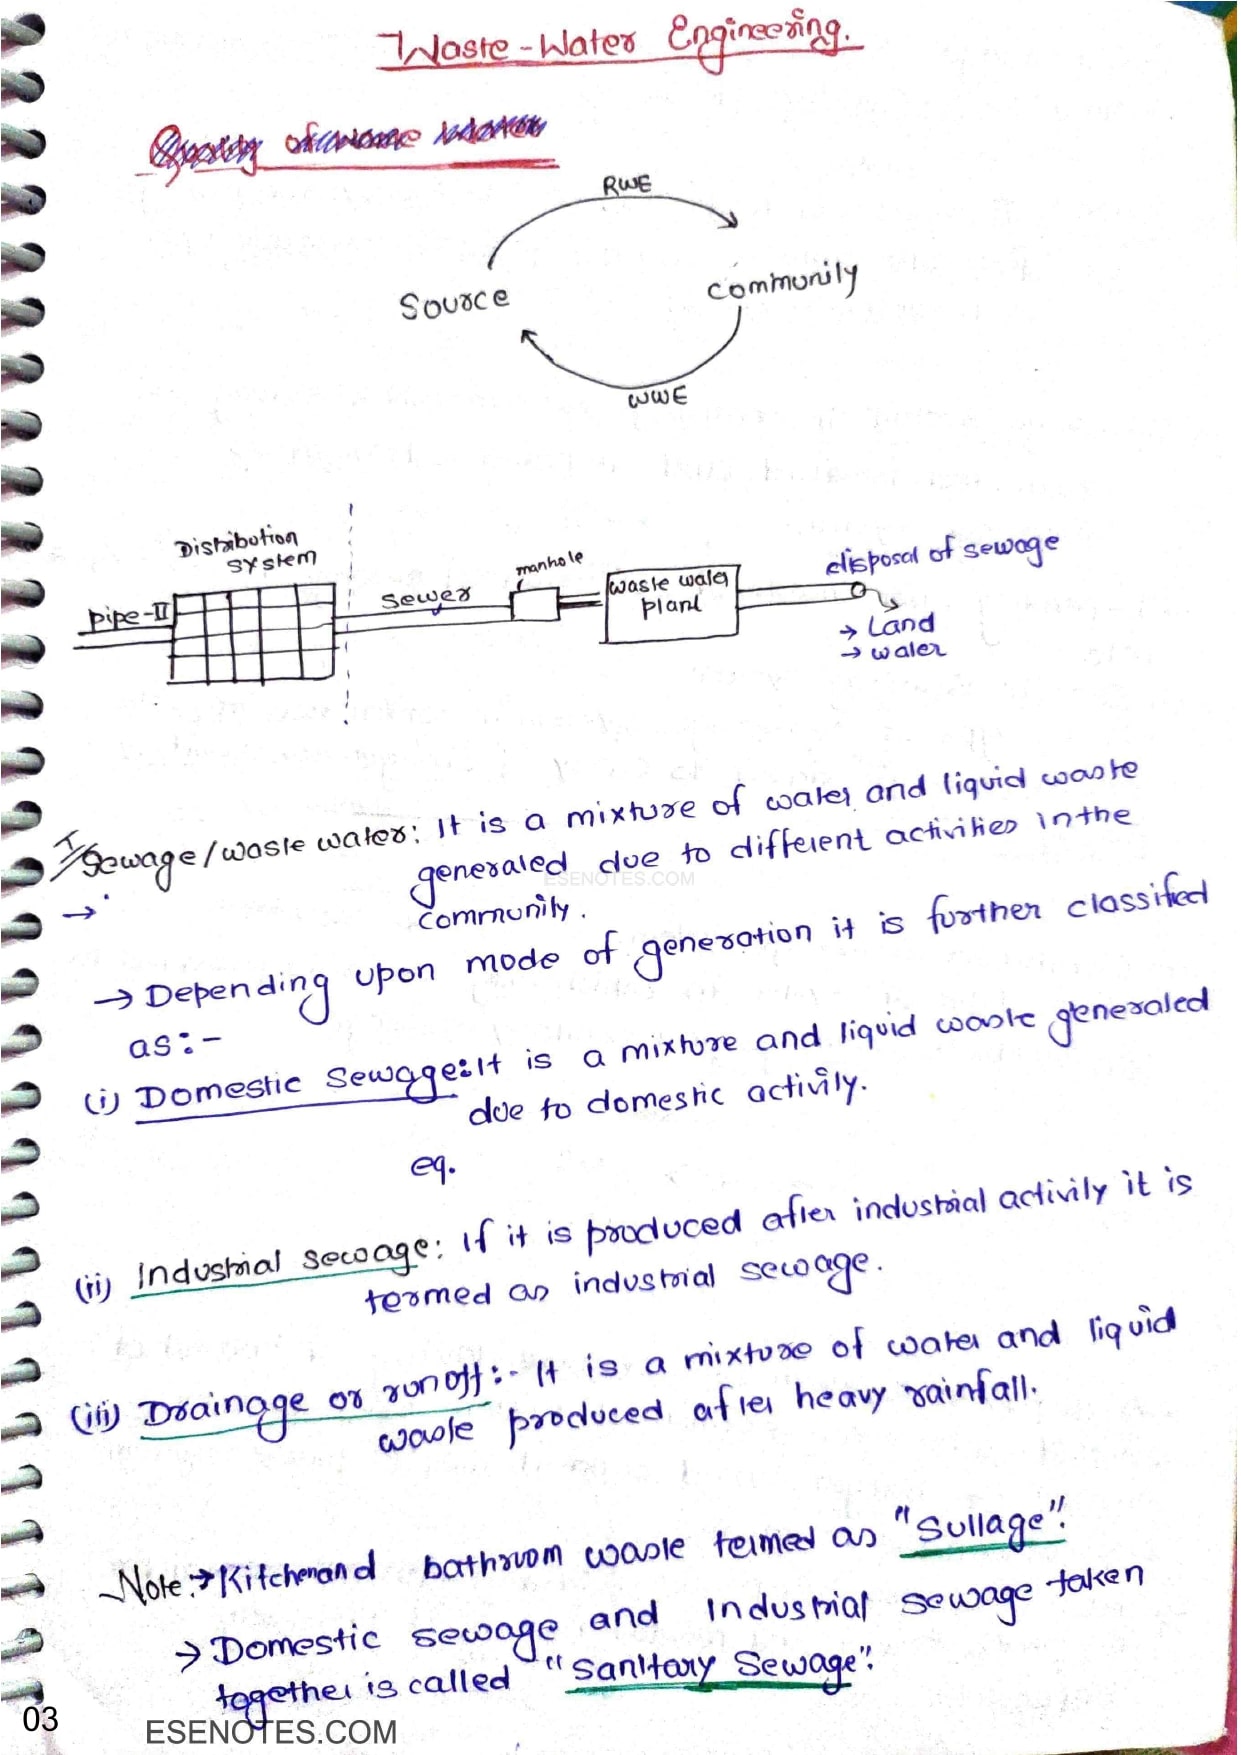 Waste-Water Engineering.
RWE
Source
community
WWE
Distribution
system
pipe-II
sewer
manhole
waste water
plant
disposal of sewage
→ Land
→ water
I Sewage/waste water: It is a mixture of water and liquid waste
generated due to different activities in the
ESENOTES.COM
→ community.
→ Depending upon mode of generation it is further classified
as:-
(i) Domestic sewage: It is a mixture and liquid waste generated
due to domestic activity.
eq.
(ii) Industrial sewage: If it is produced after industrial activity it is
termed as industrial sewage.
(iii) Drainage or runoff:- It is a mixture of water and liquid
waste produced after heavy rainfall.
Note:→ Kitchen and bathroom waste termed as "Sullage".
→ Domestic sewage and Industrial sewage taken
together is called "Sanitary Sewage".
03
ESENOTES.COM